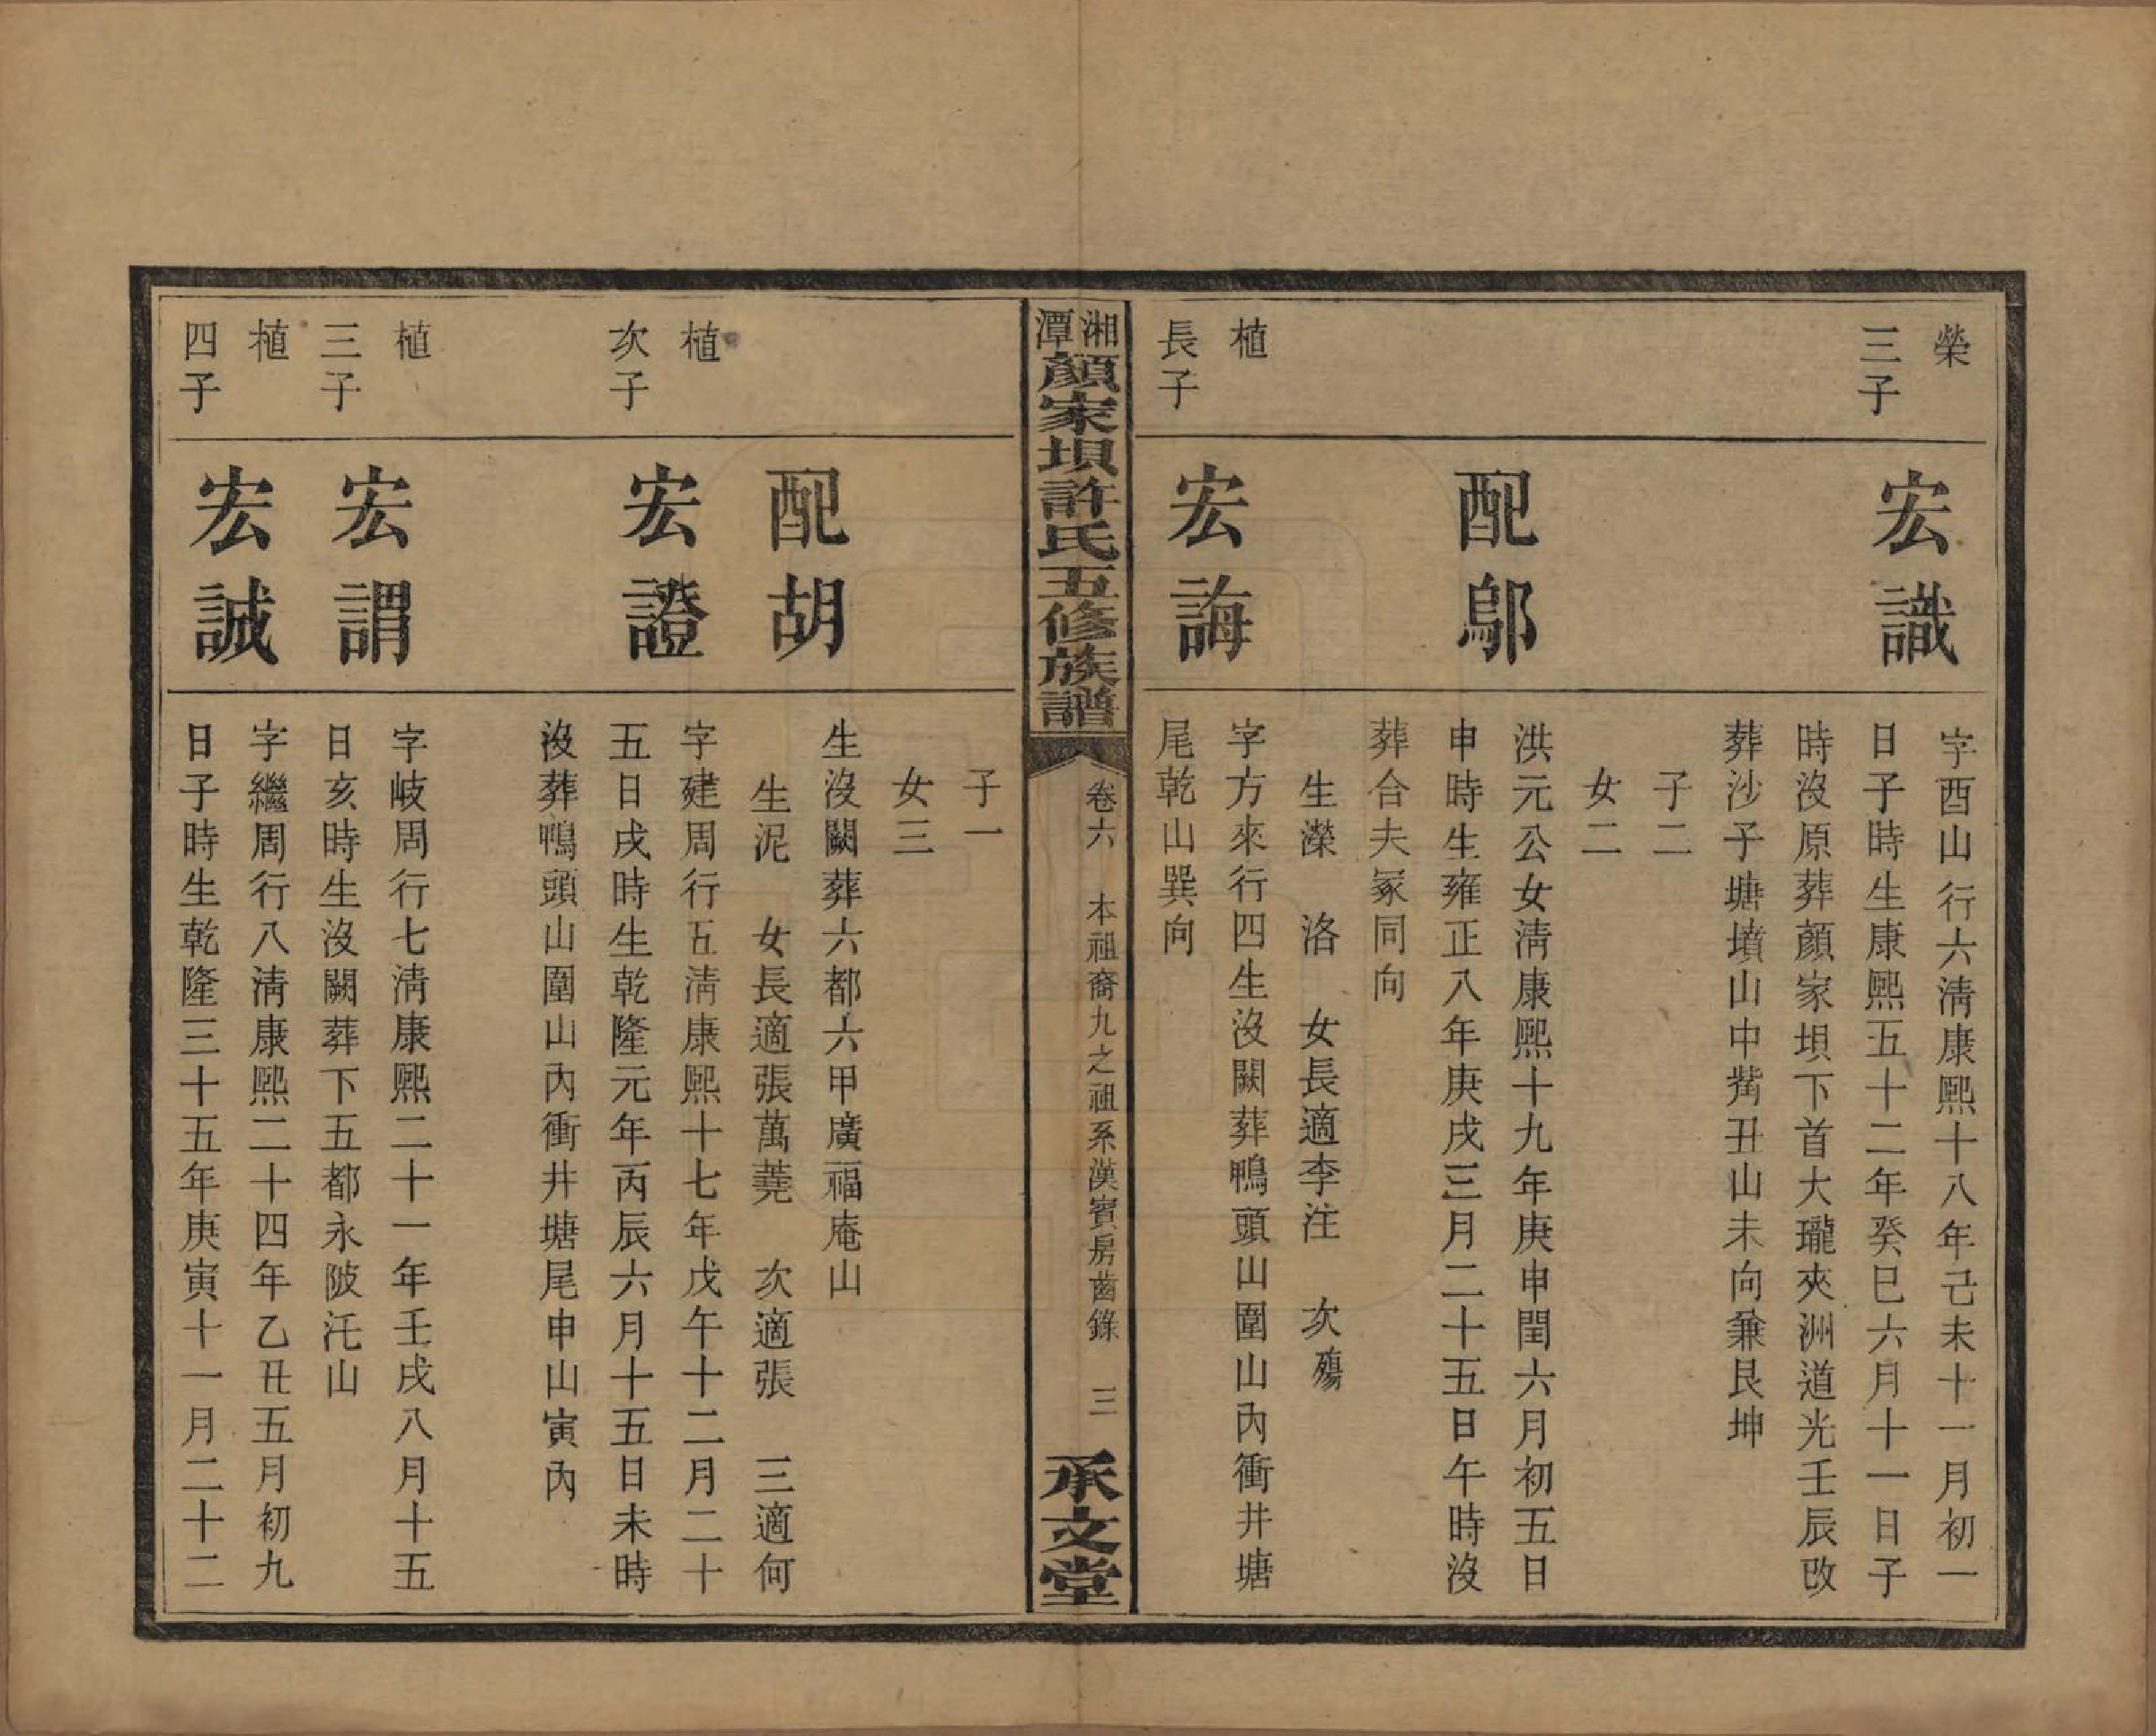 榮
三子
宏識
字酉山行六淸康熙十八年己未十一月初一
日子時生康熙五十二年癸巳六月十一日子
時沒原葬顏家坝下首大瓏夾洲道光壬辰改
葬沙子塘墳山中觜丑山未向兼艮坤
子二
女二
配鄔
洪元公女淸康熙十九年庚申閏六月初五日
申時生雍正八年庚戌三月二十五日午時沒
葬合夫冢同向
生濼 洛 女長適李注 次殤
植
長子
宏誨
字方來行四生沒闕葬鴨頭山圍山內衝井塘
尾乾山巽向
湘潭顏家坝許氏五修族譜
卷六 本祖裔九之祖系漢賓房齒錄 三
承文堂
子一
女三
配胡
生沒闕葬六都六甲廣福庵山
生泥 女長適張萬蕘 次適張 三適何
植
次子
宏證
字建周行五淸康熙十七年戊午十二月二十
五日戌時生乾隆元年丙辰六月十五日未時
沒葬鴨頭山圍山內衝井塘尾申山寅內
植
三子
宏謂
字岐周行七淸康熙二十一年壬戌八月十五
日亥時生沒闕葬下五都永陂汑山
植
四子
宏誠
字繼周行八淸康熙二十四年乙丑五月初九
日子時生乾隆三十五年庚寅十一月二十二